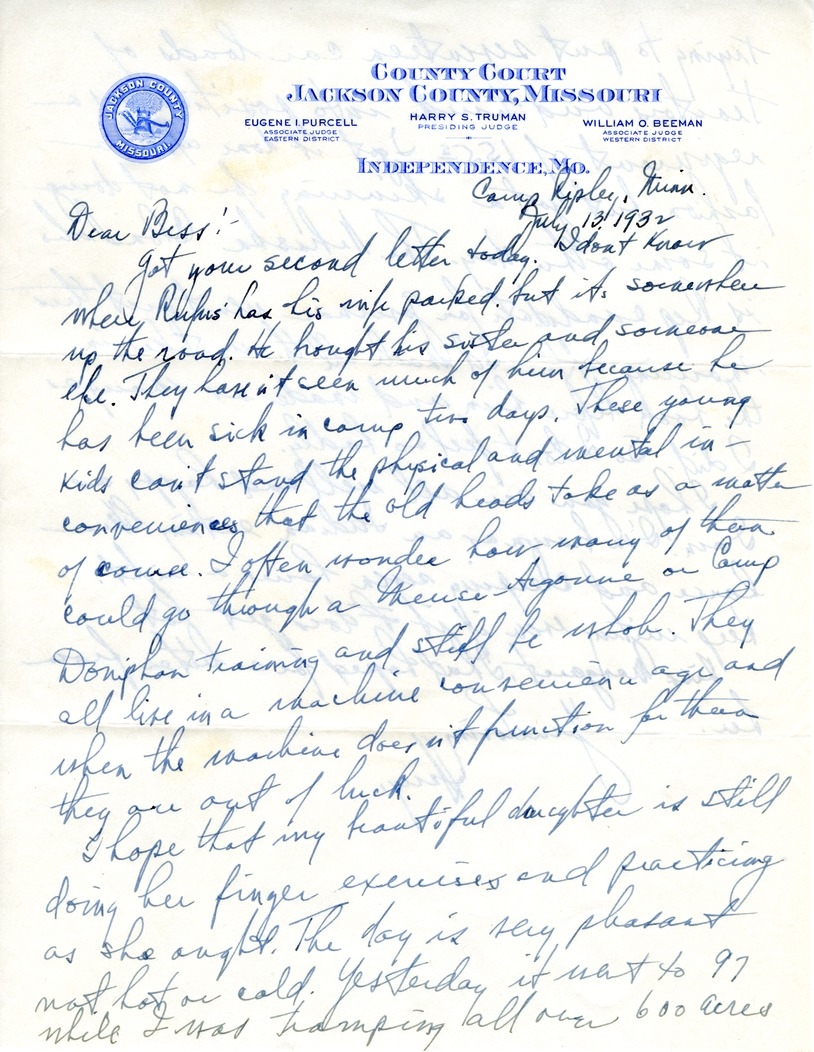 COUNTY COURT
JACKSON COUNTY, MISSOURI
JACKSON COUNTY
MISSOURI
EUGENE I. PURCELL
ASSOCIATE JUDGE
EASTERN DISTRICT
HARRY S. TRUMAN
PRESIDING JUDGE
WILLIAM O. BEEMAN
ASSOCIATE JUDGE
WESTERN DISTRICT
INDEPENDENCE, MO.
Camp Ripley, Minn.
July 13, 1932
Dear Bess:-
Got your second letter today. I don't know
where Rufus has his wife parked, but it's somewhere
up the road. He brought his sister and someone
else. They haven't seen much of him because he
has been sick in camp two days. These young
kids can't stand the physical and mental in-
conveniences that the old heads take as a matter
of course. I often wonder how many of them
could go through a Meuse-Argonne or Camp
Doniphan training and still be whole. They
all live in a machine convenience age and
when the machine doesn't function for them
they are out of luck.
I hope that my beautiful daughter is still
doing her finger exercises and practicing
as she ought. The day is very pleasant
not hot or cold. Yesterday it went to 97
while I was tramping all over 600 acres